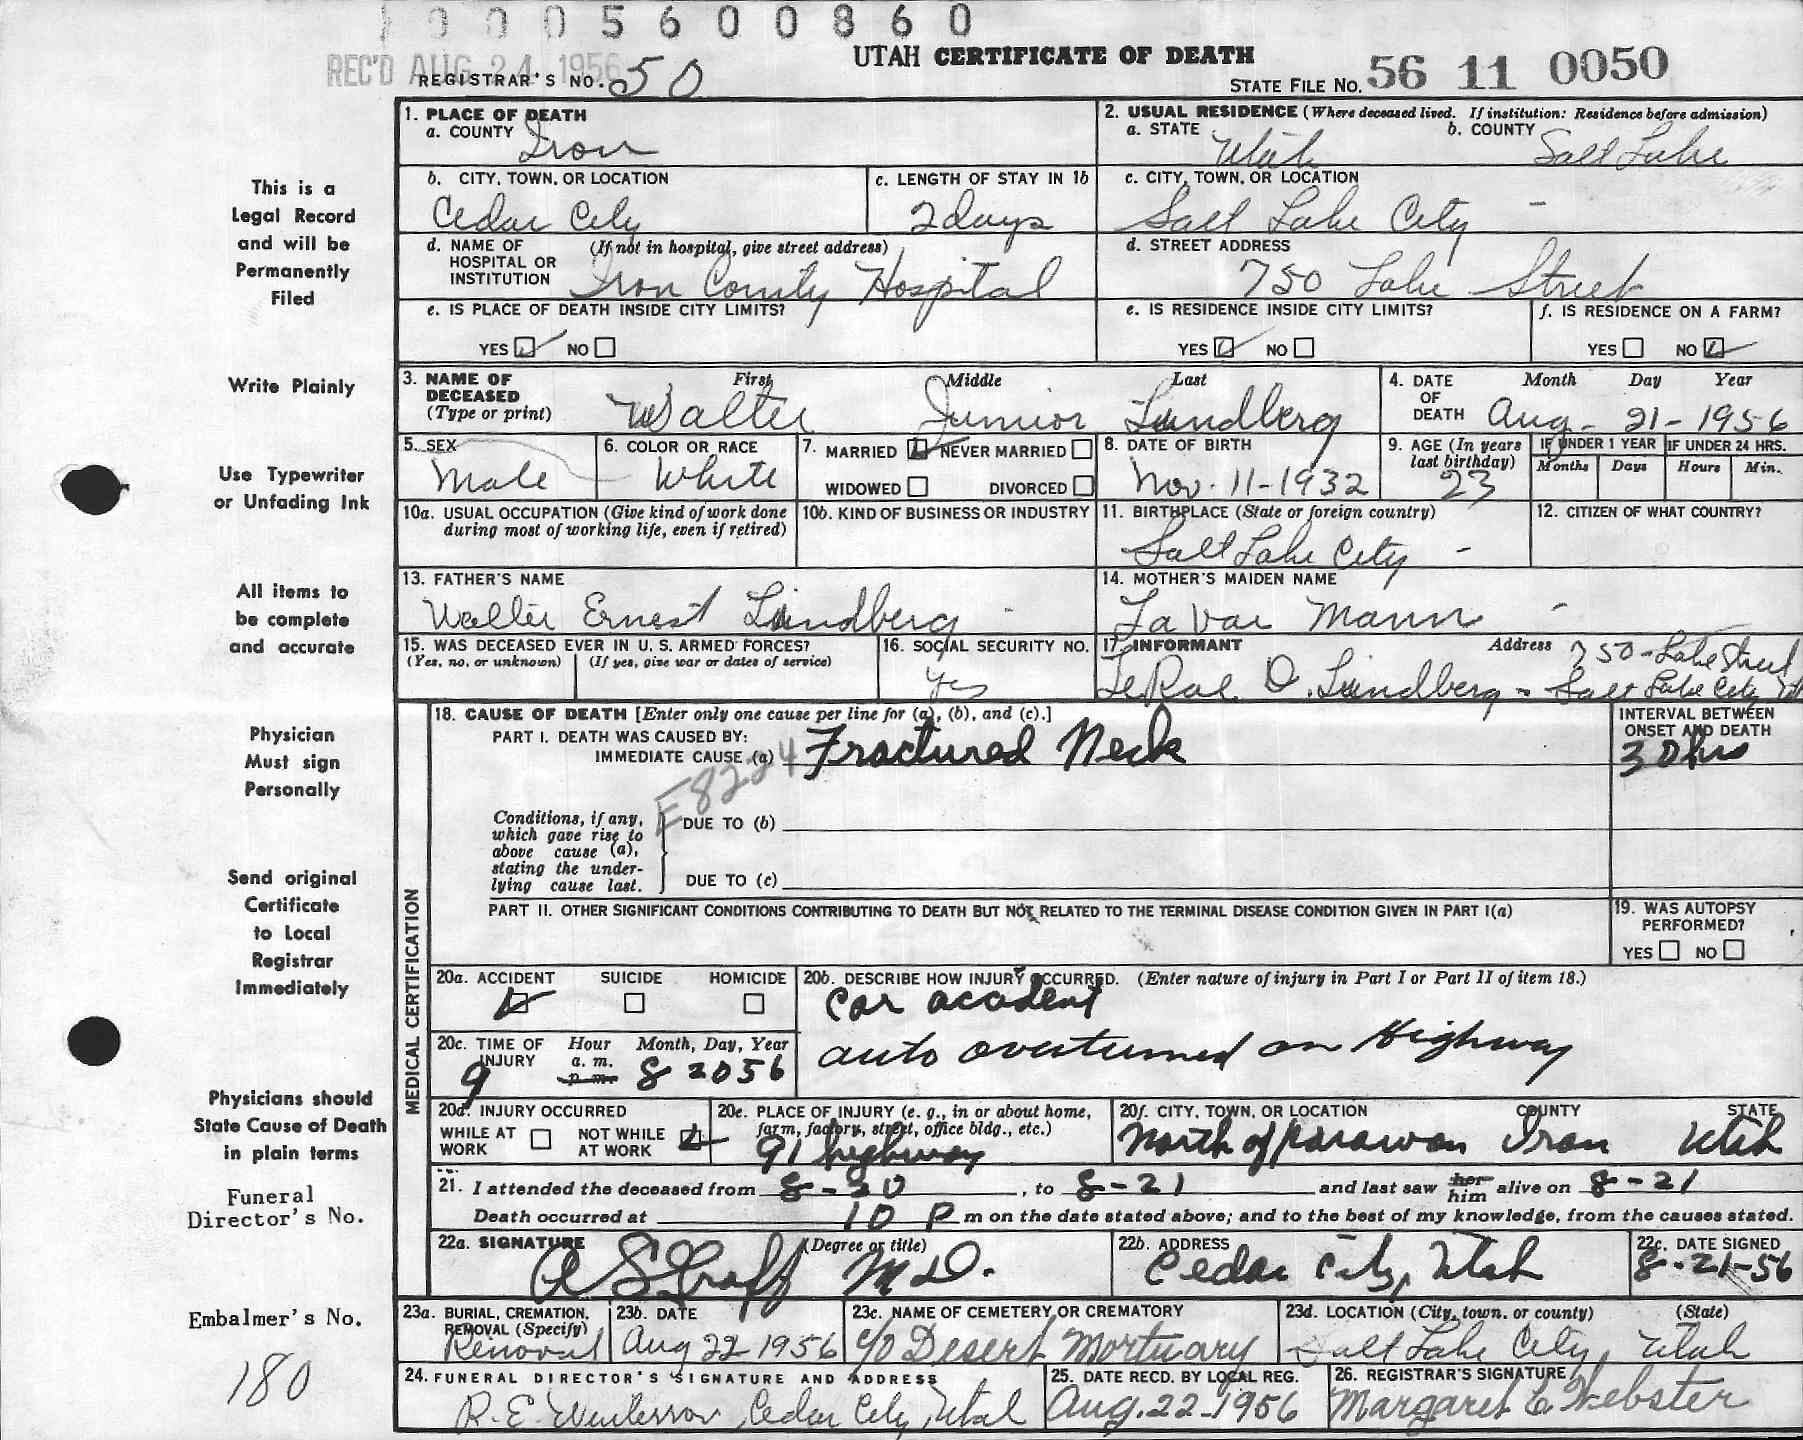 1 0 0 0 5 6 0 0 8 6 0
REC'D AUG 24 1956
REGISTRAR'S NO. 50
UTAH CERTIFICATE OF DEATH
STATE FILE NO. 56 11 0050
This is a
Legal Record
and will be
Permanently
Filed
Write Plainly
Use Typewriter
or Unfading Ink
All items to
be complete
and accurate
Physician
Must sign
Personally
Send original
Certificate
to Local
Registrar
Immediately
Physicians should
State Cause of Death
in plain terms
Funeral
Director's No.
Embalmer's No.
180
1. PLACE OF DEATH
a. COUNTY Iron
2. USUAL RESIDENCE (Where deceased lived. If institution: Residence before admission)
a. STATE Utah b. COUNTY Salt Lake
b. CITY, TOWN, OR LOCATION
Cedar City
c. LENGTH OF STAY IN 1b
2 days
c. CITY, TOWN, OR LOCATION
Salt Lake City -
d. NAME OF HOSPITAL OR INSTITUTION (If not in hospital, give street address)
Iron County Hospital
d. STREET ADDRESS
750 Lake Street
e. IS PLACE OF DEATH INSIDE CITY LIMITS?
YES NO
e. IS RESIDENCE INSIDE CITY LIMITS?
YES NO
f. IS RESIDENCE ON A FARM?
YES NO
3. NAME OF DECEASED (Type or print) First Middle Last
Walter Junior Lundberg
4. DATE OF DEATH Month Day Year
Aug - 21 - 1956
5. SEX
Male
6. COLOR OR RACE
White
7. MARRIED NEVER MARRIED
WIDOWED DIVORCED
8. DATE OF BIRTH
Nov. 11 - 1932
9. AGE (In years last birthday)
23
IF UNDER 1 YEAR IF UNDER 24 HRS.
Months Days Hours Min.
10a. USUAL OCCUPATION (Give kind of work done during most of working life, even if retired)
10b. KIND OF BUSINESS OR INDUSTRY
11. BIRTHPLACE (State or foreign country)
Salt Lake City -
12. CITIZEN OF WHAT COUNTRY?
13. FATHER'S NAME
Walter Ernest Lundberg
14. MOTHER'S MAIDEN NAME
LaVar Mann -
15. WAS DECEASED EVER IN U. S. ARMED FORCES?
(Yes, no, or unknown) (If yes, give war or dates of service)
16. SOCIAL SECURITY NO.
yes
17. INFORMANT Address 750 - Lake Street
LeRae O. Lundberg - Salt Lake City Ut
MEDICAL CERTIFICATION
18. CAUSE OF DEATH [Enter only one cause per line for (a), (b), and (c).]
PART I. DEATH WAS CAUSED BY:
IMMEDIATE CAUSE (a) Fractured Neck
INTERVAL BETWEEN ONSET AND DEATH
30 hrs
E8224
Conditions, if any, which gave rise to above cause (a), stating the underlying cause last.
DUE TO (b)
DUE TO (c)
PART II. OTHER SIGNIFICANT CONDITIONS CONTRIBUTING TO DEATH BUT NOT RELATED TO THE TERMINAL DISEASE CONDITION GIVEN IN PART I(a)
19. WAS AUTOPSY PERFORMED?
YES NO
20a. ACCIDENT SUICIDE HOMICIDE
20b. DESCRIBE HOW INJURY OCCURRED. (Enter nature of injury in Part I or Part II of item 18.)
Car accident
auto overturned on Highway
20c. TIME OF INJURY Hour Month, Day, Year
9 a. m. p. m. 8 20 56
20d. INJURY OCCURRED
WHILE AT WORK NOT WHILE AT WORK
20e. PLACE OF INJURY (e. g., in or about home, farm, factory, street, office bldg., etc.)
91 highway
20f. CITY, TOWN, OR LOCATION COUNTY STATE
North of Parawan Iron Utah
21. I attended the deceased from 8-20, to 8-21 and last saw her him alive on 8-21
Death occurred at 10 P m on the date stated above; and to the best of my knowledge, from the causes stated.
22a. SIGNATURE (Degree or title)
A S Graff M D.
22b. ADDRESS
Cedar City, Utah
22c. DATE SIGNED
8-21-56
23a. BURIAL, CREMATION, REMOVAL (Specify)
Removal
23b. DATE
Aug 22 1956
23c. NAME OF CEMETERY OR CREMATORY
c/o Desert Mortuary
23d. LOCATION (City, town, or county) (State)
Salt Lake City, Utah
24. FUNERAL DIRECTOR'S SIGNATURE AND ADDRESS
R. E. Cedar City, Utah
25. DATE RECD. BY LOCAL REG.
Aug. 22 - 1956
26. REGISTRAR'S SIGNATURE
Margaret C Webster